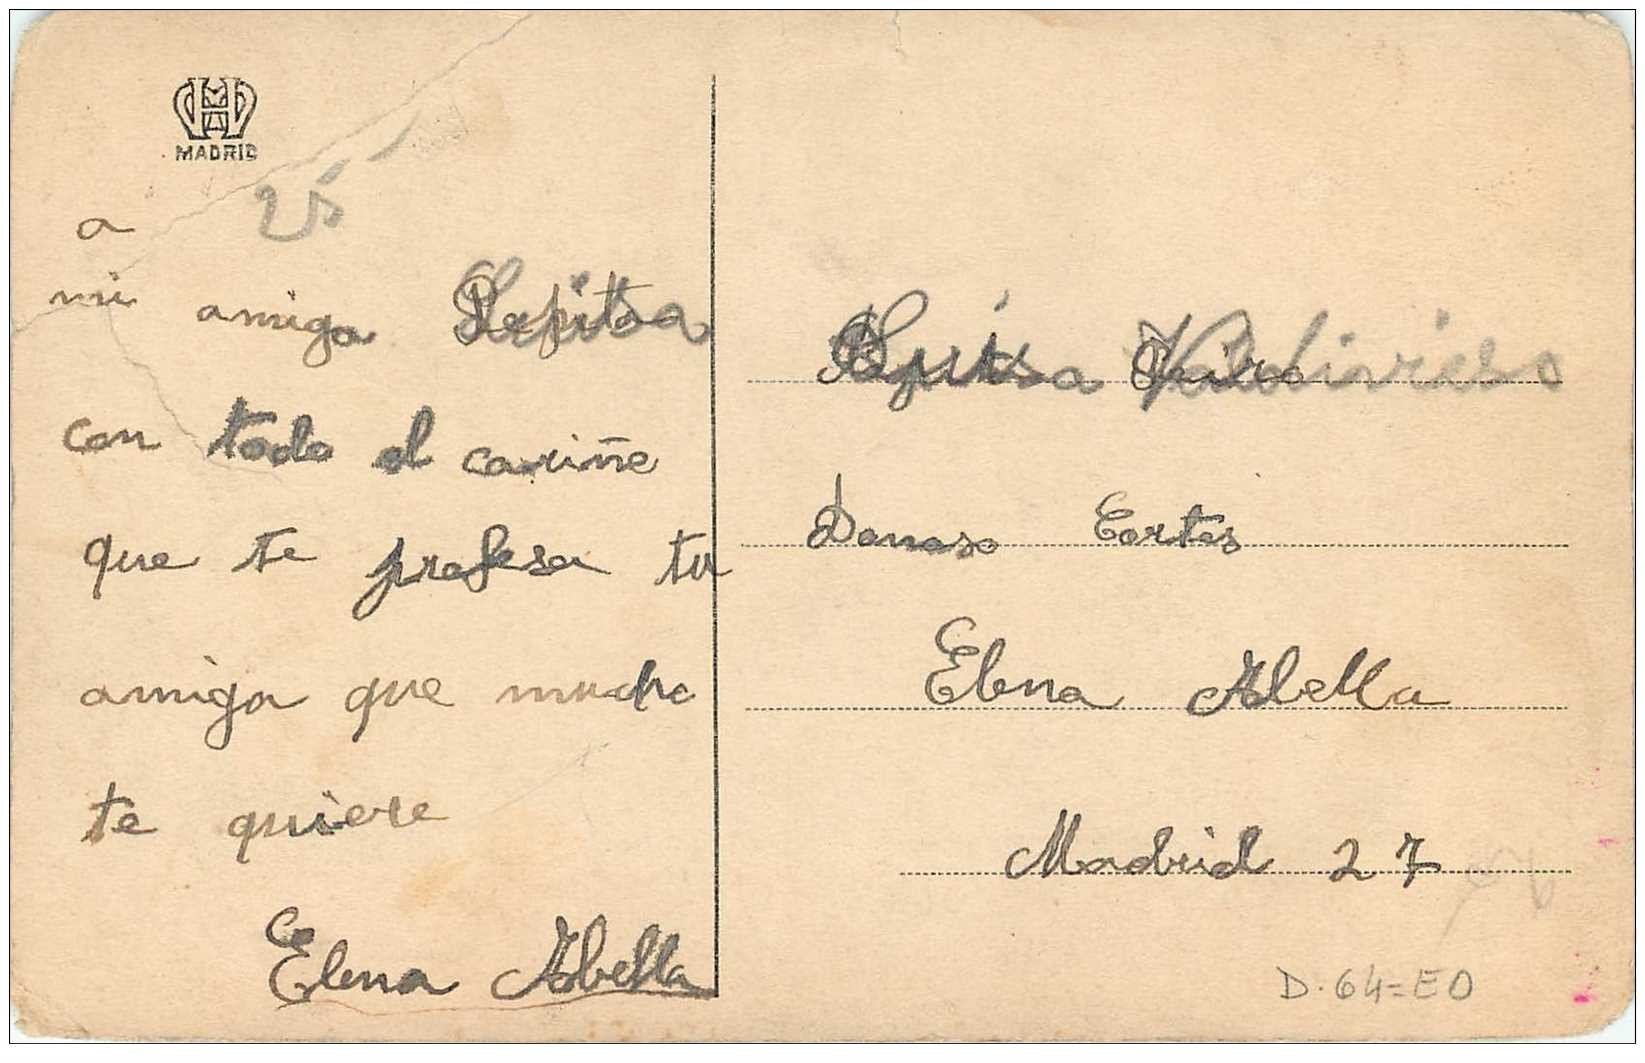 MADRID
a
mi amiga Pepitsa
con todo el cariñe
que te profesa tu
amiga que muche
te quiere
Elena Abella
Valdivieso
Donoso Cortes
Elena Abella
Madrid 27
D. 64=EO